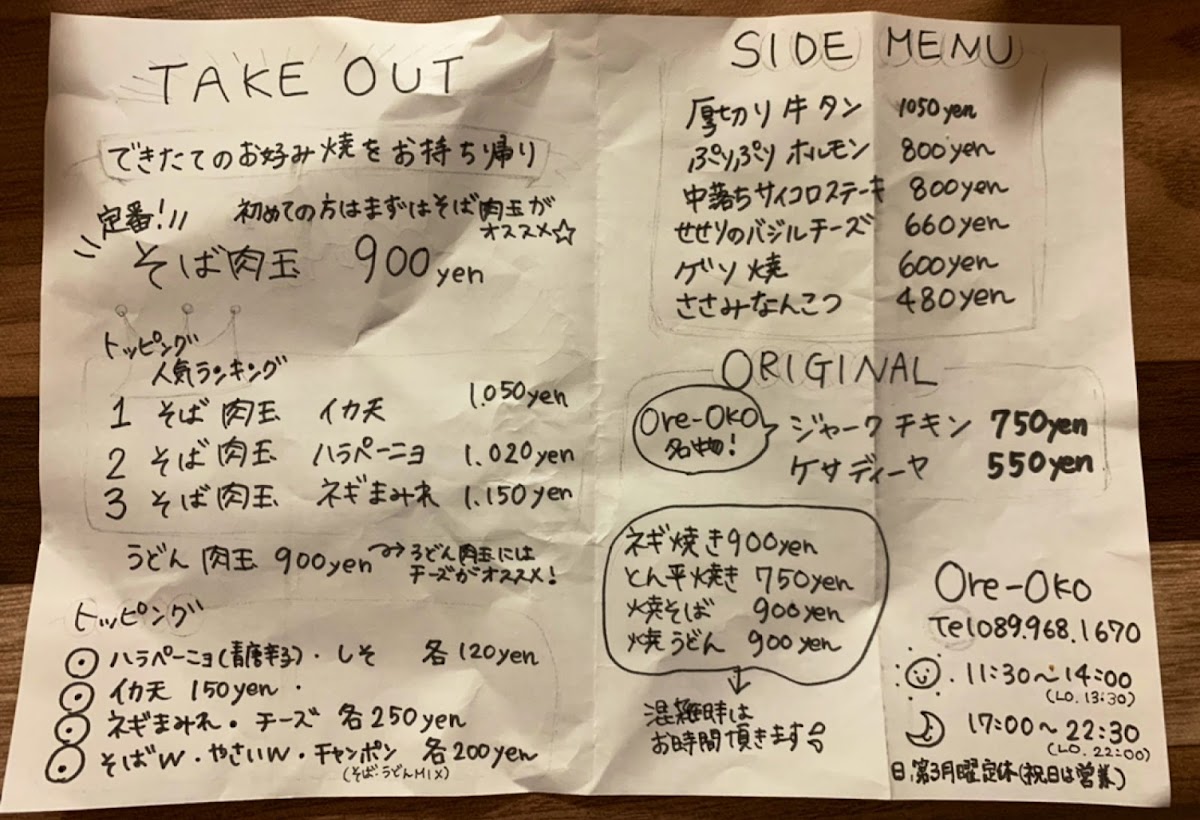 TAKE OUT
できたてのお好み焼をお持ち帰り
定番!!! 初めての方はまずはそば肉玉が
オススメ☆
そば肉玉 900yen
トッピング
人気ランキング
1 そば肉玉 イカ天 1.050yen
2 そば肉玉 ハラペーニョ 1.020yen
3 そば肉玉 ネギまみれ 1.150yen
うどん肉玉 900yen うどん肉玉には
チーズがオススメ!
トッピング
ハラペーニョ(青唐辛子)・しそ 各120yen
イカ天 150yen
ネギまみれ・チーズ 各250yen
そばW・やさいW・チャンポン 各200yen
(そば・うどんMIX)
SIDE MENU
厚切り牛タン 1050yen
ぷりぷりホルモン 800yen
中落ちサイコロステーキ 800yen
せせりのバジルチーズ 660yen
ゲソ焼 600yen
ささみなんこつ 480yen
ORIGINAL
Ore-Oko
名物!
ジャークチキン 750yen
ケサディーヤ 550yen
ネギ焼き900yen
とん平焼き 750yen
焼そば 900yen
焼うどん 900yen
↓
混雑時は
お時間頂きます
Ore-Oko
Tel089.968.1670
11:30〜14:00
(LO.13:30)
17:00〜22:30
(LO.22:00)
日.第3月曜定休(祝日は営業)